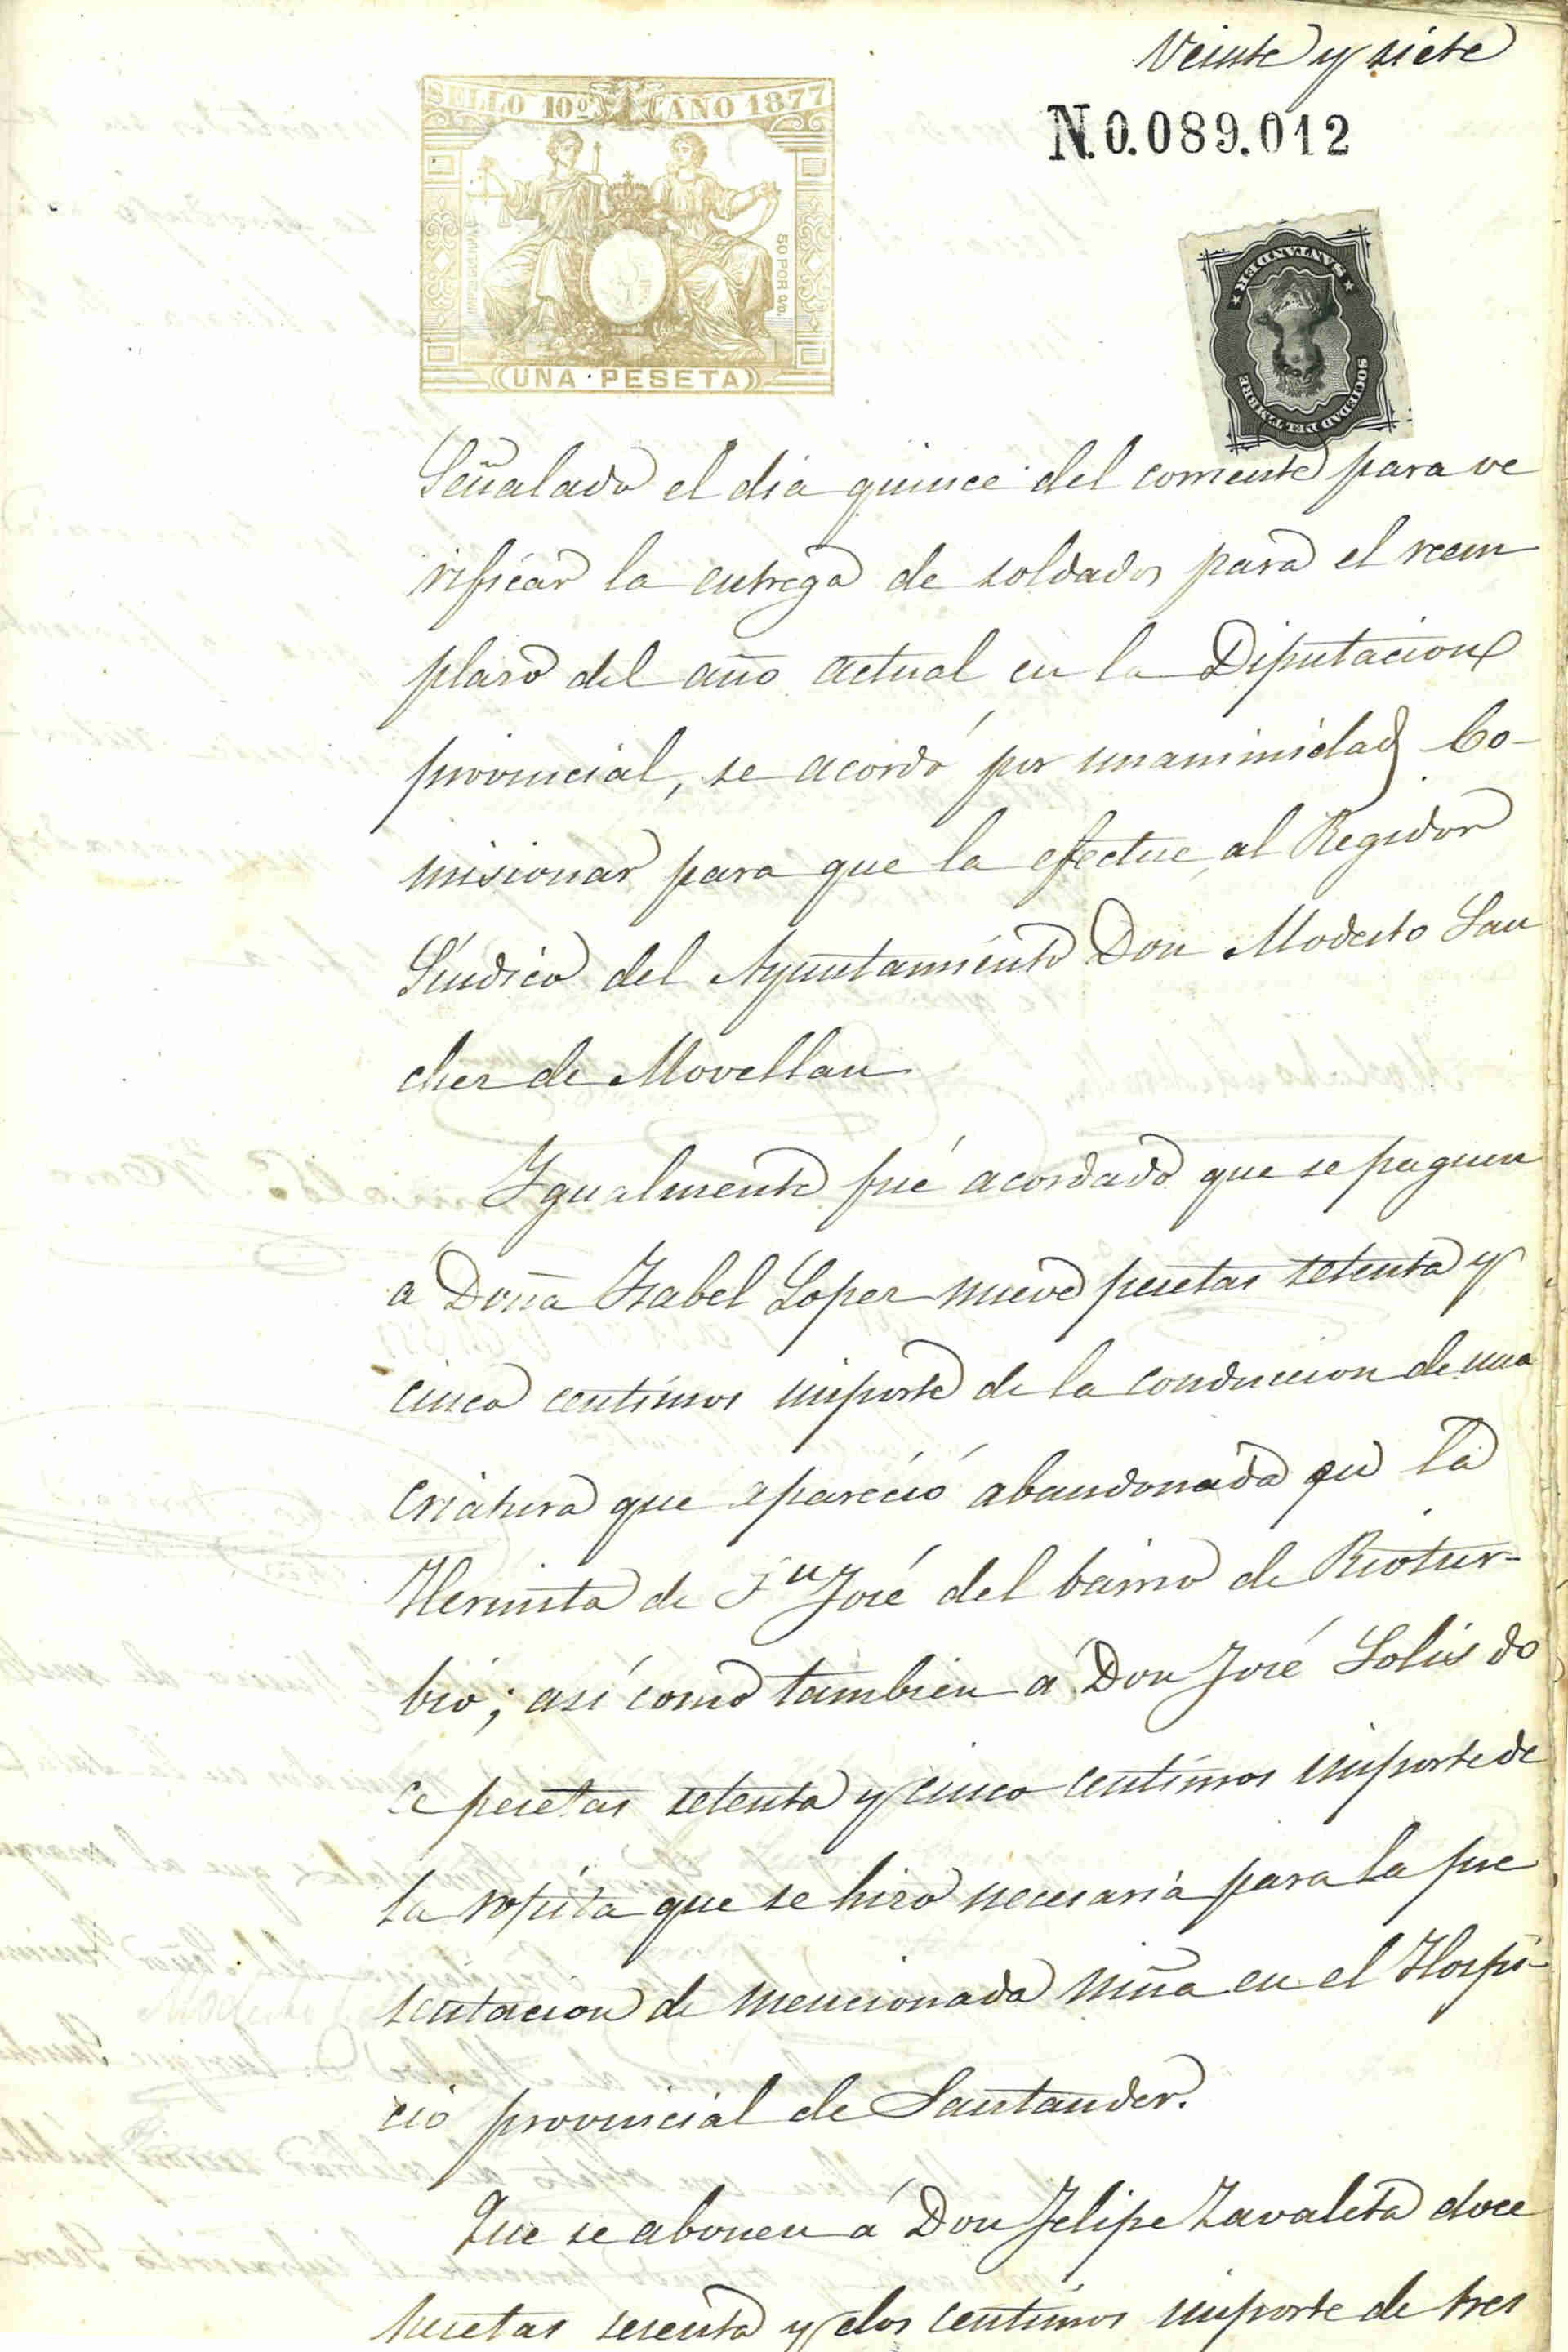 Veinte y siete
SELLO 10º AÑO 1877
N.0.089.012
50 POR 0/0.
UNA PESETA
SANTANDER
SOCIEDAD DEL TIMBRE
Señalado el dia quince del corriente para ve
rificar la entrega de soldados para el reem
plazo del año actual en la Diputacion
provincial, se acordó por unanimidad Co-
misionar para que la efectue, al Regidor
Síndico del Ayuntamiento Don Modesto San
chez de Movellan
Igualmente fué acordado que se paguen
a Doña Isabel Lopez nueve pesetas setenta y
cinco centimos importe de la conduccion de una
criatura que apareció abandonada en la
Hermita de Sn José del barrio de Riotur-
bio; así como tambien á Don José Solis do
ce pesetas setenta y cinco centimos importe de
la ropita que se hizo necesaria para la pre
sentacion de mencionada niña en el Hospi-
cio provincial de Santander.
Que se abonen á Don Felipe Zavaleta doce
pesetas sesenta y dos centimos importe de tres